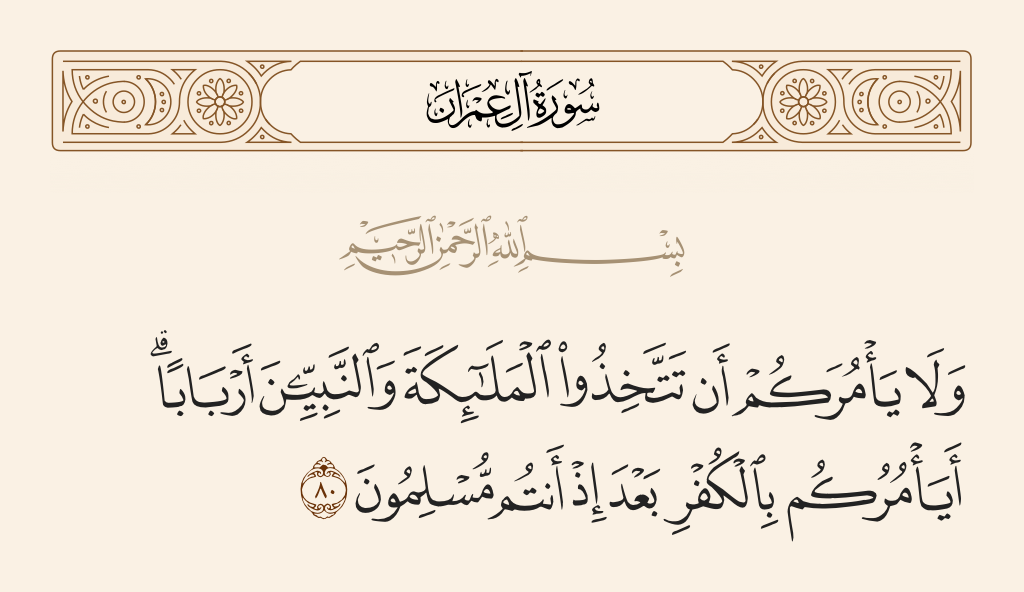 سُورَةُ آلِ عِمْرَان
بِسْمِ ٱللَّهِ ٱلرَّحْمَٰنِ ٱلرَّحِيمِ
وَلَا يَأْمُرَكُمْ أَن تَتَّخِذُوا۟ ٱلْمَلَـٰٓئِكَةَ وَٱلنَّبِيِّـۧنَ أَرْبَابًا ۗ
أَيَأْمُرُكُم بِٱلْكُفْرِ بَعْدَ إِذْ أَنتُم مُّسْلِمُونَ ٨٠